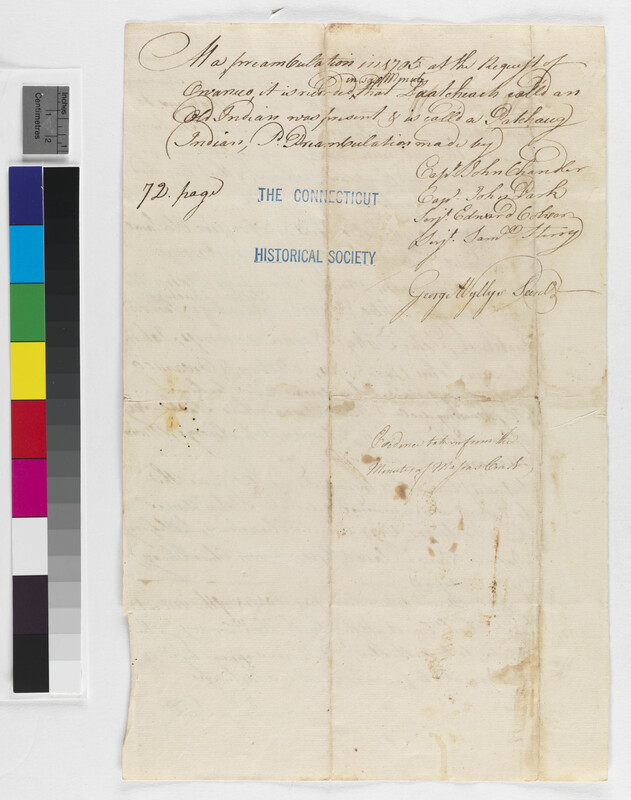 At a preambulation in 1705 at the Request of
Owaneco, it is recited in sd Minute that called an
Old Indian was present & is calld a
Indian, Preambulation made by
Capt John Chandler
Capt. John Park
Serjt. Edward
Serjt. Samll
72. page
THE CONNECTICUT
HISTORICAL SOCIETY
George Wyllys Secret
Evidence taken from the
Minutes of
Inches
Centimetres
1
2